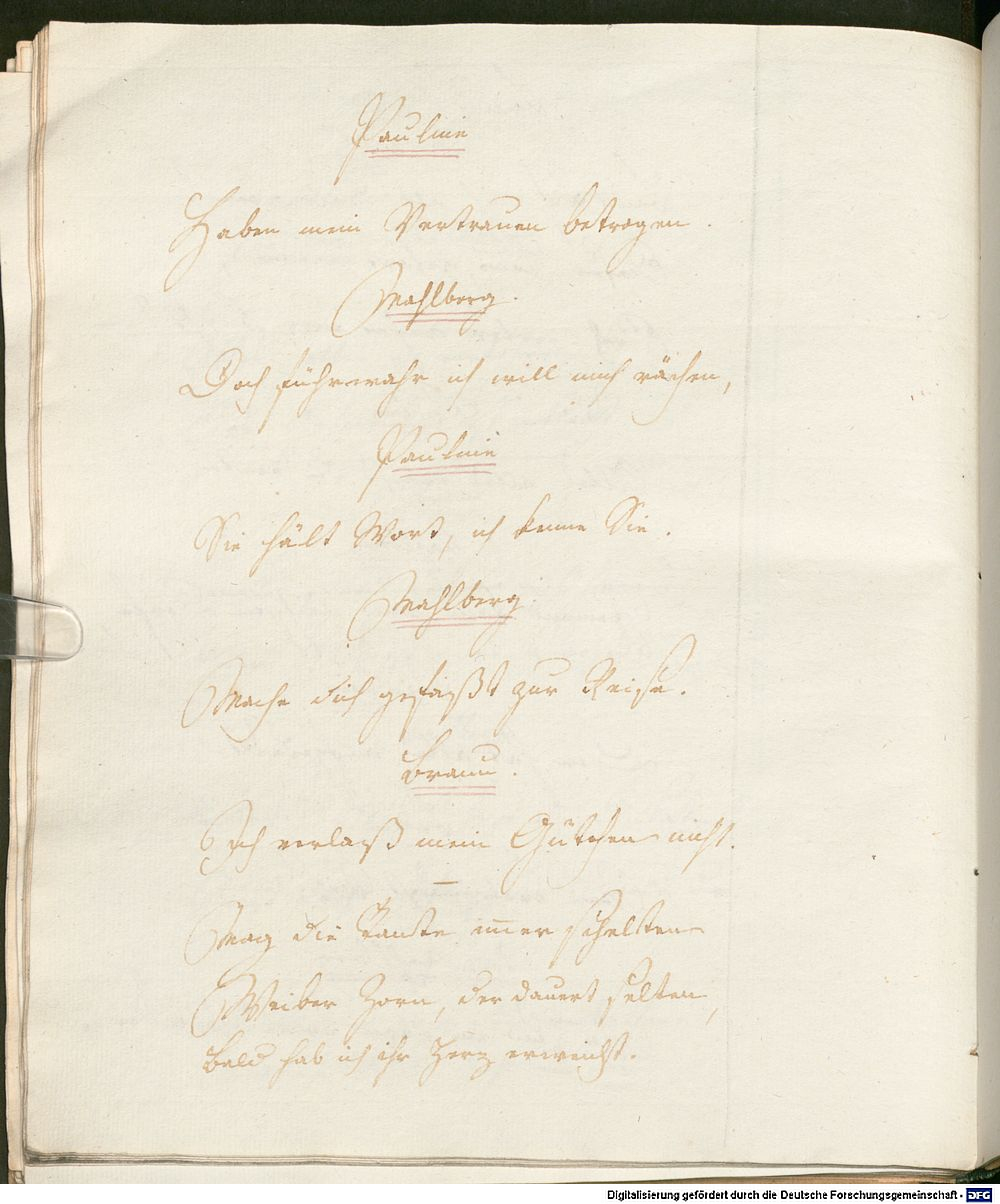 Pauline
Haben mein Vertrauen betrogen.
Wahlberg.
Doch führwahr ich will mich rächen,
Pauline
Sie hält Wort, ich kenne Sie.
Wahlberg.
Mache dich gefaßt zur Reise.
Braun.
Ich verlaß mein Gütchen nicht.
Mag die Tante im̅er schelten
Weiber Zorn, der dauert selten,
Bald hab ich ihr Herz erweicht.
Digitalisierung gefördert durch die Deutsche Forschungsgemeinschaft - DFG